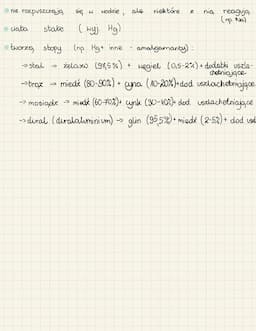 nie rozpuszczają się w wodzie, ale niektóre z nią reagują
(np. Na)
ciała stałe (wyj. Hg)
tworzą stopy (np Hg + inne - amalgamaty):
→ stal → żelazo (97,5%) + węgiel (0,5-2%) + dodatki uszla-
chetniające
→ brąz → miedź (80-90%) + cyna (10-20%) + dod uszlachetniające
→ mosiądz → miedź (60-70%) + cynk (30-40%) + dod. uszlachetniające
→ dural (duraluminium) → glin (95,5%) + miedź (2-5%) + dod usz